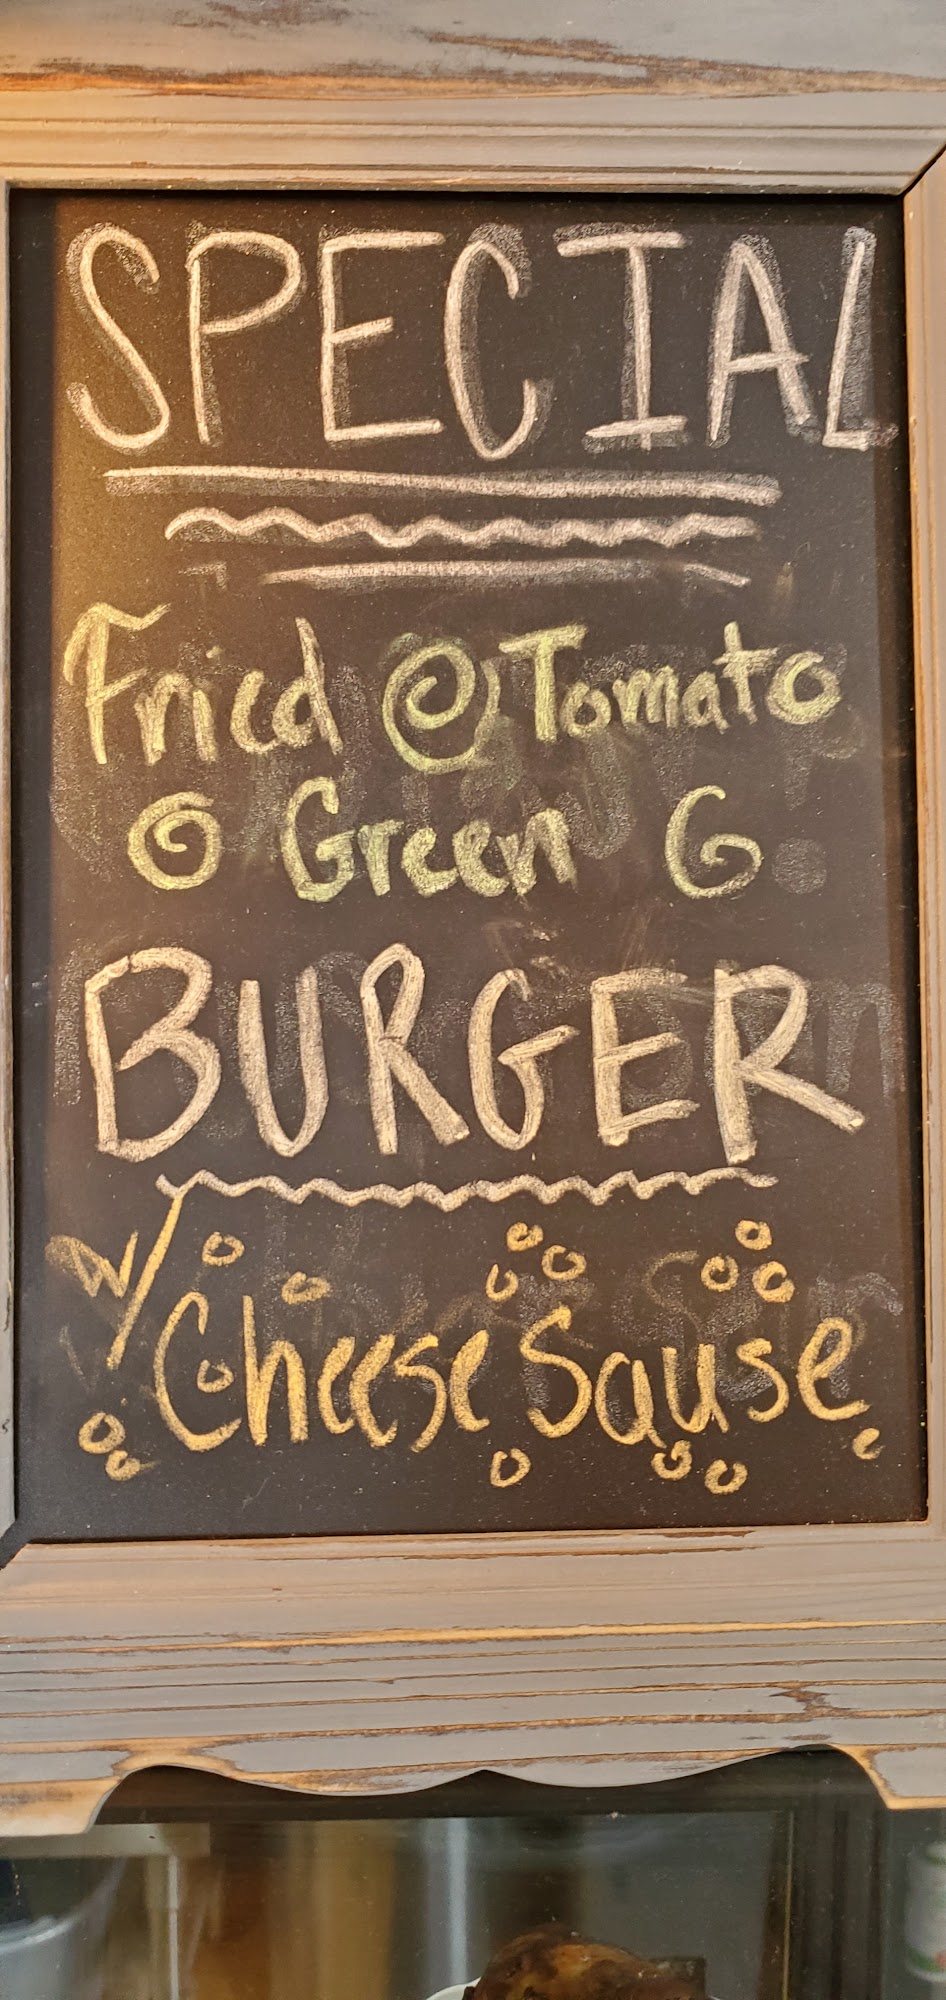 SPECIAL
Fried Tomato
Green
BURGER
w/
Cheese Sause